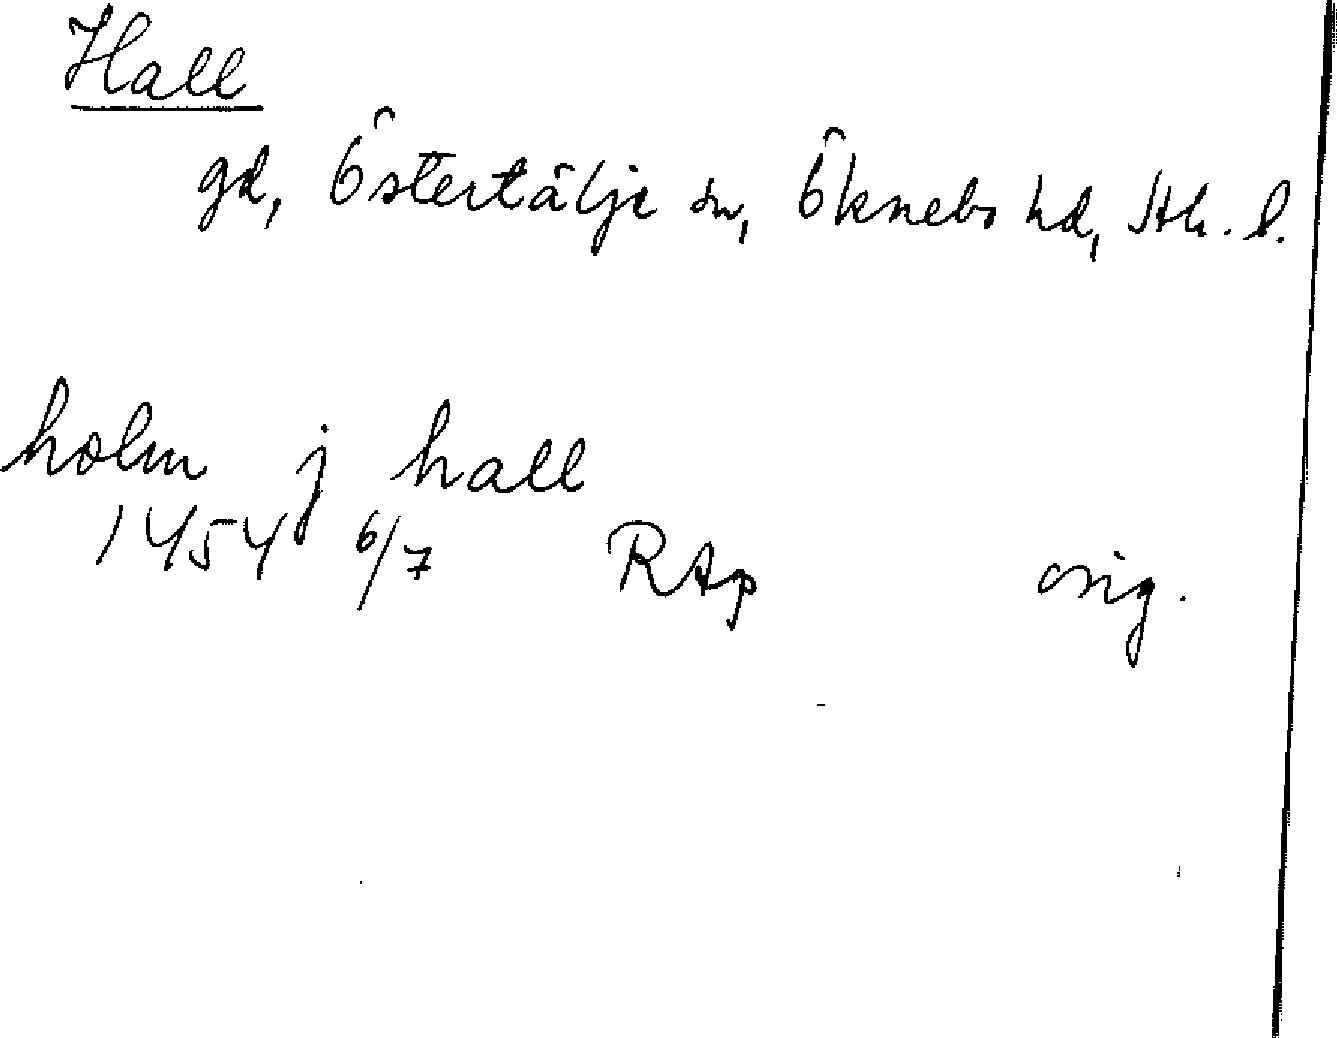 Hall
gd, Östertälje sn, Öknebo hd, Sth. l.
holm j hall
1454 6/7 RAp orig.